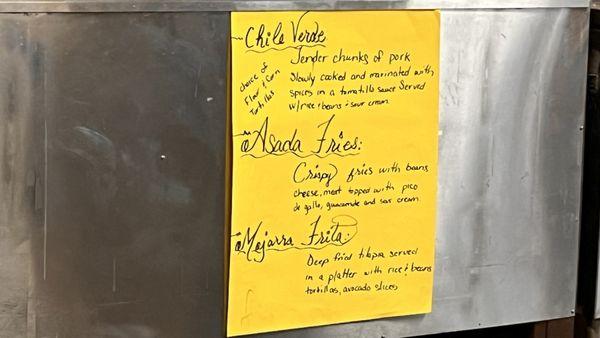 Chile Verde
Tender chunks of pork
Slowly cooked and marinated with
spices in a tomatillo sauce Served
w/rice & beans & sour cream.
choice of
Flour & Corn
Tortillas
Asada Fries:
Crispy fries with beans
cheese, meat topped with pico
de gallo, guacamole and sour cream
Mojarra Frita:
Deep fried tilapia served
in a platter with rice & beans
tortillas, avocado slices